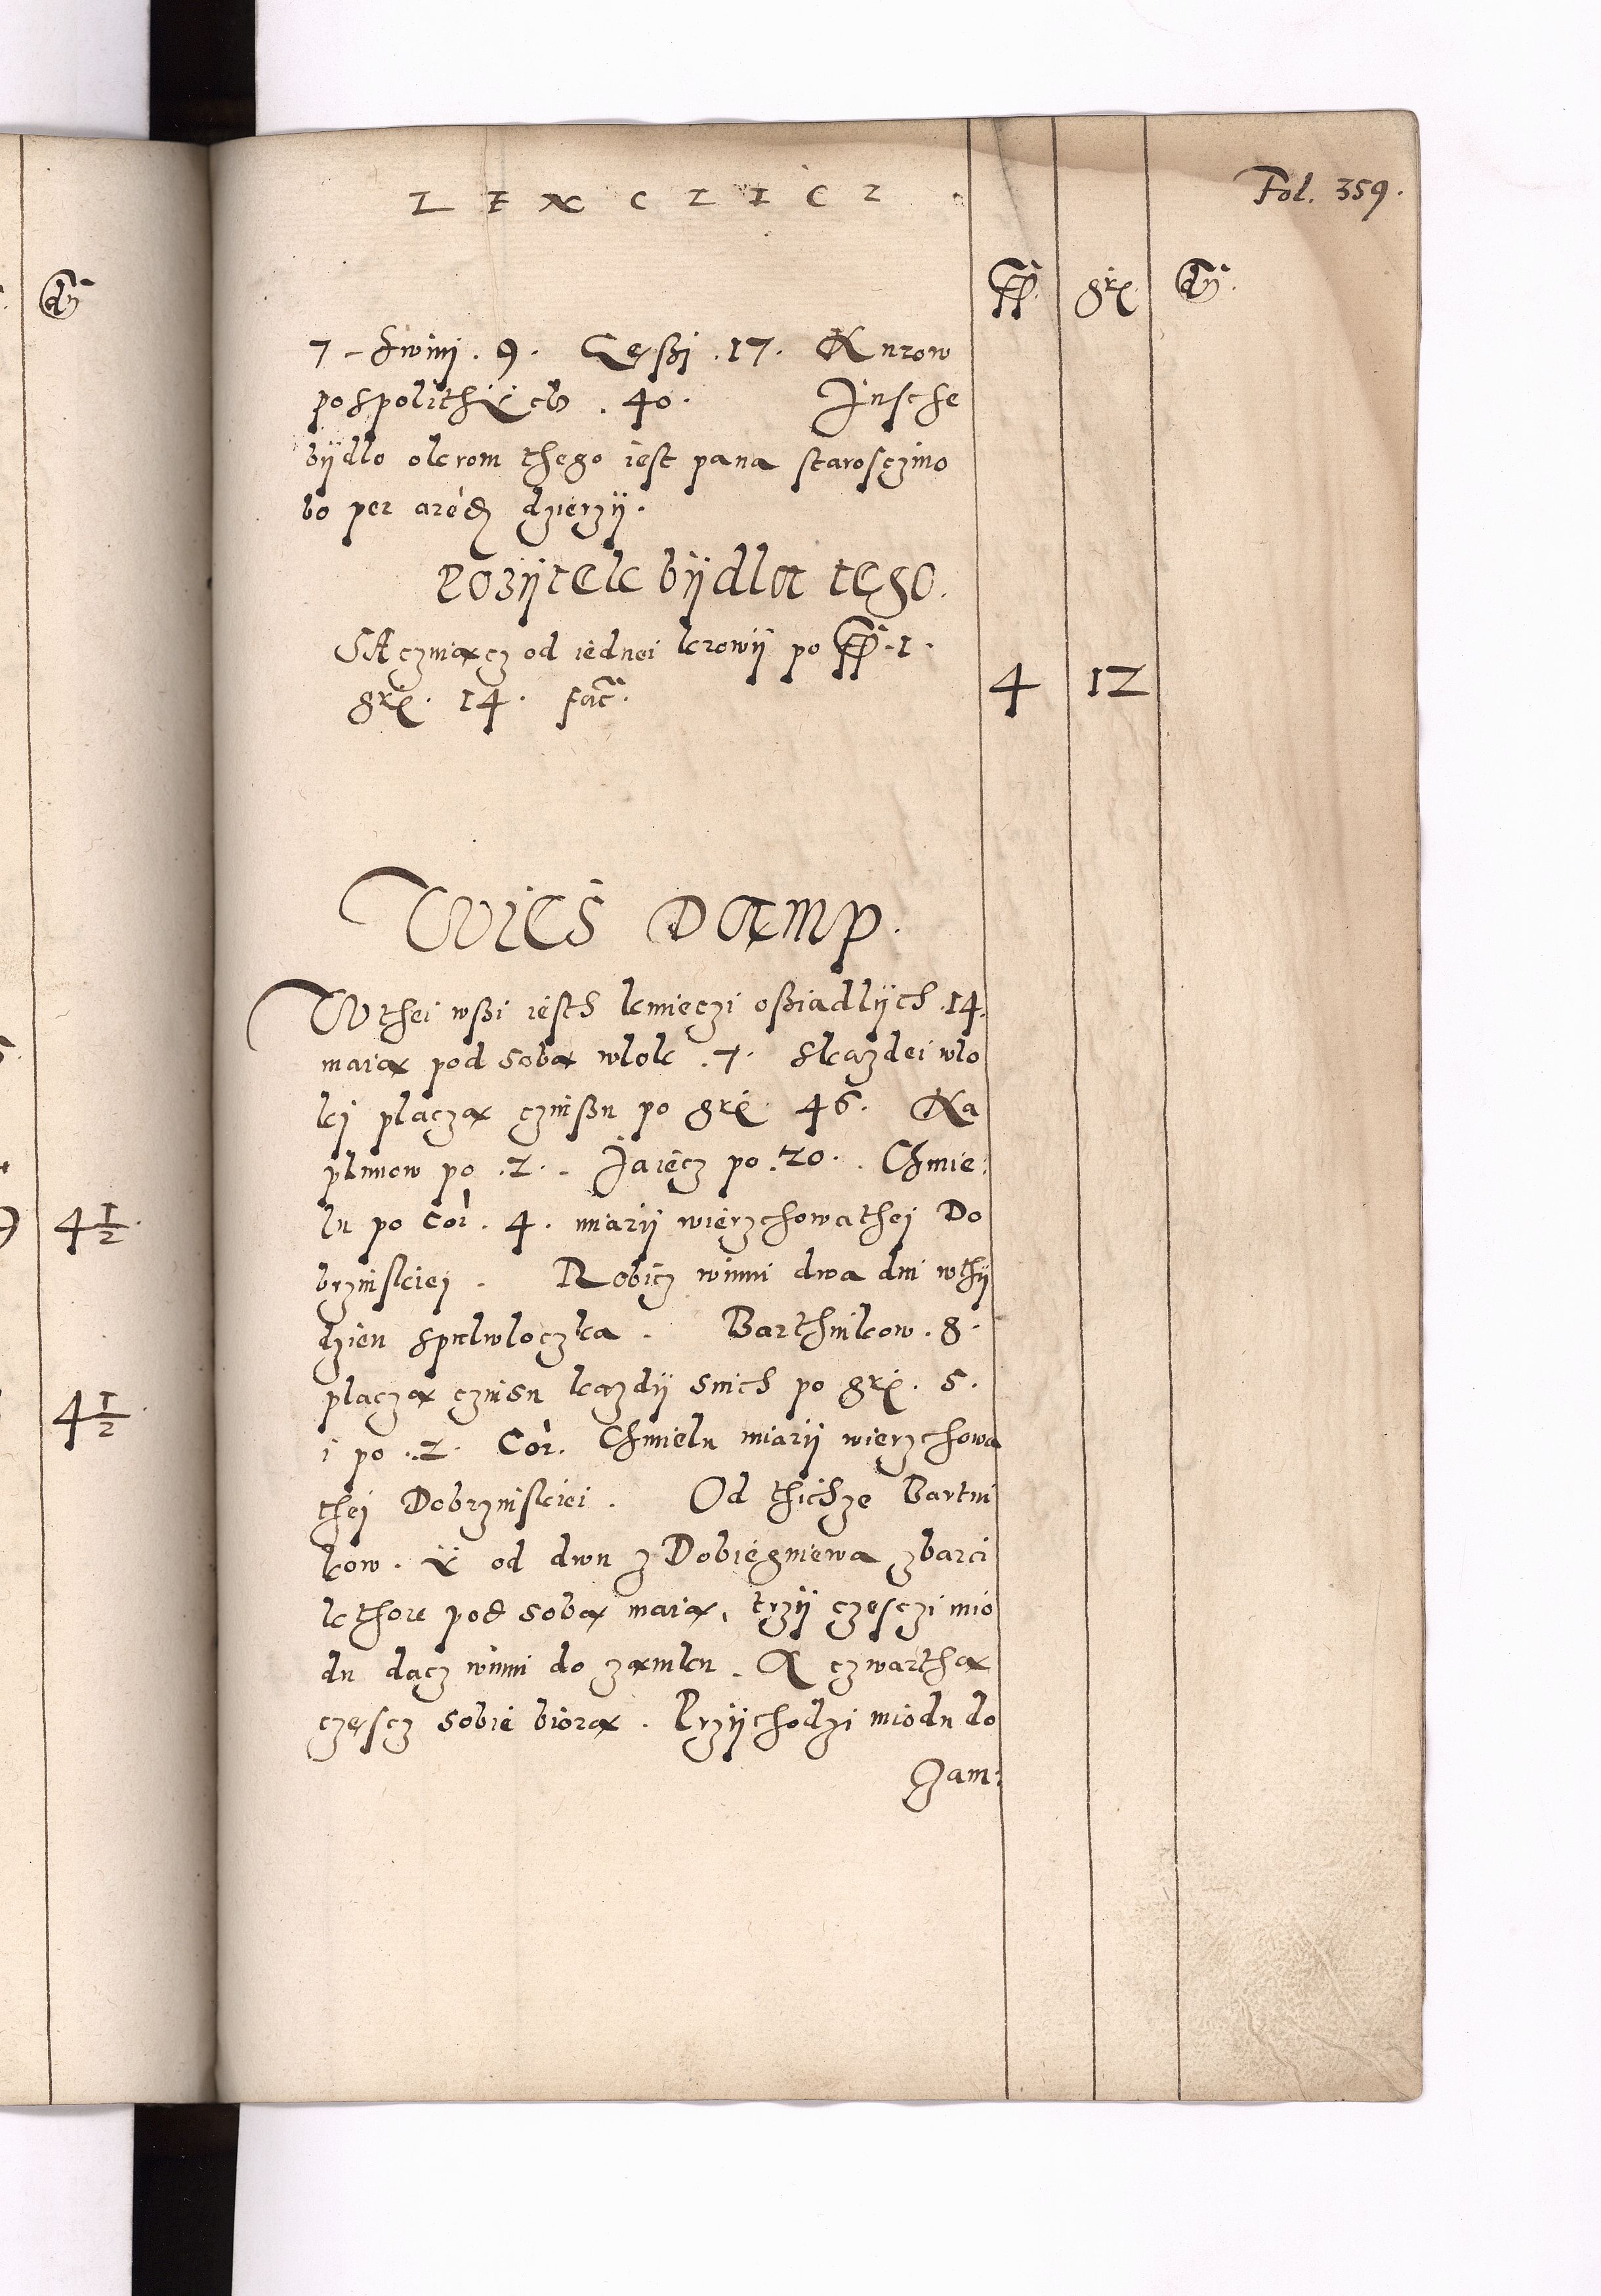 Fol. 359.
fl. gr. d.
7 - Swini . 9 . Gęßi . 17 . Kurow
pospolithÿch . 40 . Jnsche
bÿdło okrom thego iest pana starosczino
bo per arēd dzierzÿ.
Pozÿtek bÿdla tego.
SAczuiącz od iednei krowÿ po fl. 1 .
gr. 14 . fac.
4 12
Wies Damp.
W thei wßi iesth kmieczi oßiadlÿch .14.
maią pod sobą wlok . 7 . Skazdei wlo
ki placzą czinßu po gr. 46 . Ka
plunow po . 2 . - Jaiecz po . 20 . . Chmie:
lu po Cor . 4 . miarÿ wierzchowathej Do
brzinskiej . Robicz winni dwa dni wthÿ
dzien spulwloczka . Barthnikow . 8 .
placzą czinsu kazdÿ snich po gr. 5 .
i po . 2 . Cor. Chmielu miarÿ wierzchowa
thej Dobrzinskiei . Od thichze Bartni
kow . ÿ od dwu z Dobiegniewa zbarci
kthore pod sobą maią, trzÿ czesczi mio
du dacz winni do zamku . A czwarthą
częscz sobie biorą . Przÿchodzi miodu do
Zam:
4 1/2
4 1/2